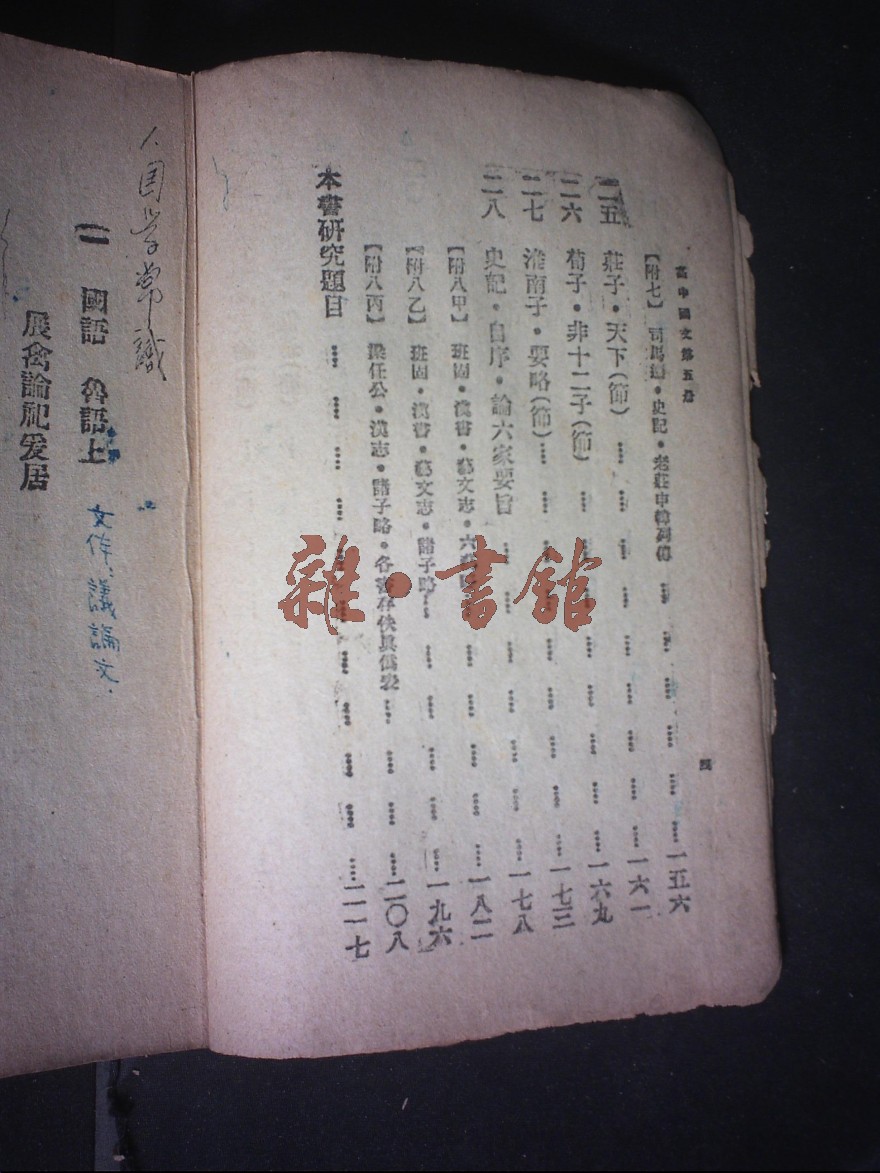 高中國文第五册
四
【附七】 司馬遷・史記・老莊申韓列傳 一五六
二五 莊子・天下(節) 一六一
二六 荀子・非十二子(節) 一六九
二七 淮南子・要略(節) 一七三
二八 史記・自序・論六家要旨 一七八
【附八甲】 班固・漢書・藝文志・六 一八二
【附八乙】 班固・漢書・藝文志・諸子略 一九六
【附八丙】 梁任公・漢志・諸子略・各書存佚真僞表 二〇八
本書研究題目 二一七
雜・書館
國學常識
(一 國語 魯語上
文体:議論文.
展禽論祀爰居